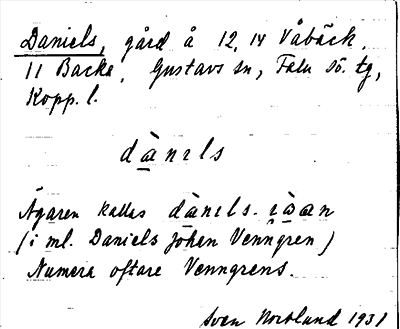 Daniels, gård å 12, 14 Våbäck,
11 Backa, Gustavs sn, Falu sö. tg,
Kopp. l.
dànɪls
Ägaren kallas dànɪls-
(i ml. Daniels Johen Venngren)
Numera oftare Venngrens.
Sven Norblund 1931